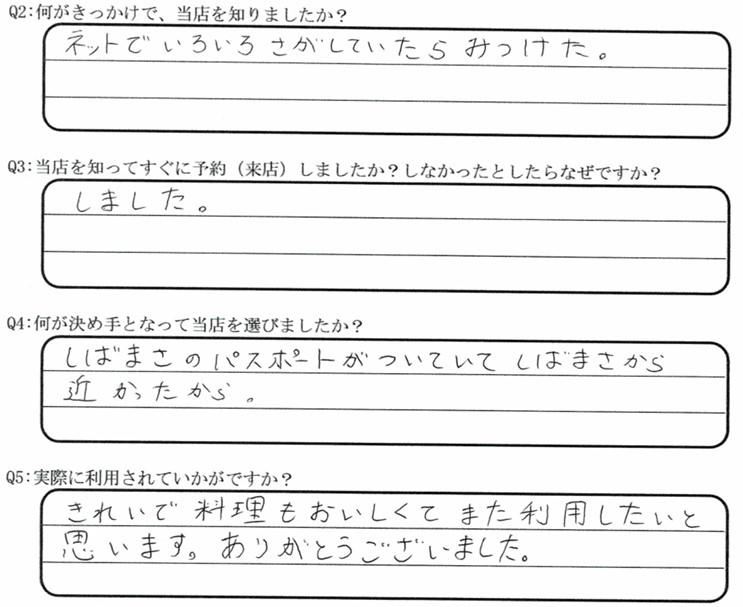 Q2:何がきっかけで、当店を知りましたか？
ネットでいろいろさがしていたらみつけた。
Q3:当店を知ってすぐに予約（来店）しましたか？しなかったとしたらなぜですか？
しました。
Q4:何が決め手となって当店を選びましたか？
しばまさのパスポートがついていてしばまさから
近かったから。
Q5:実際に利用されていかがですか？
きれいで料理もおいしくてまた利用したいと
思います。ありがとうございました。